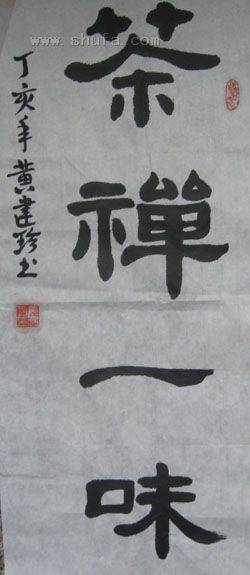 茶禪一味
丁亥年黄建珍书
www.shufa.com